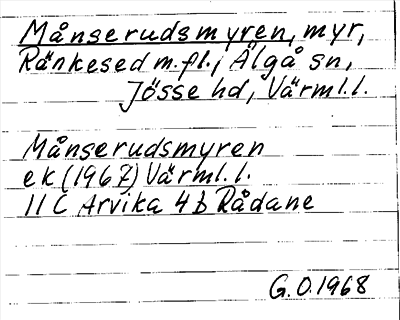 Månserudsmyren, myr,
Ränkesed m.fl., Älgå sn,
Jösse hd, Värml.l.
Månserudsmyren
ek (1967) Värml.l.
11 C Arvika 4 b Rådane
G.O.1968